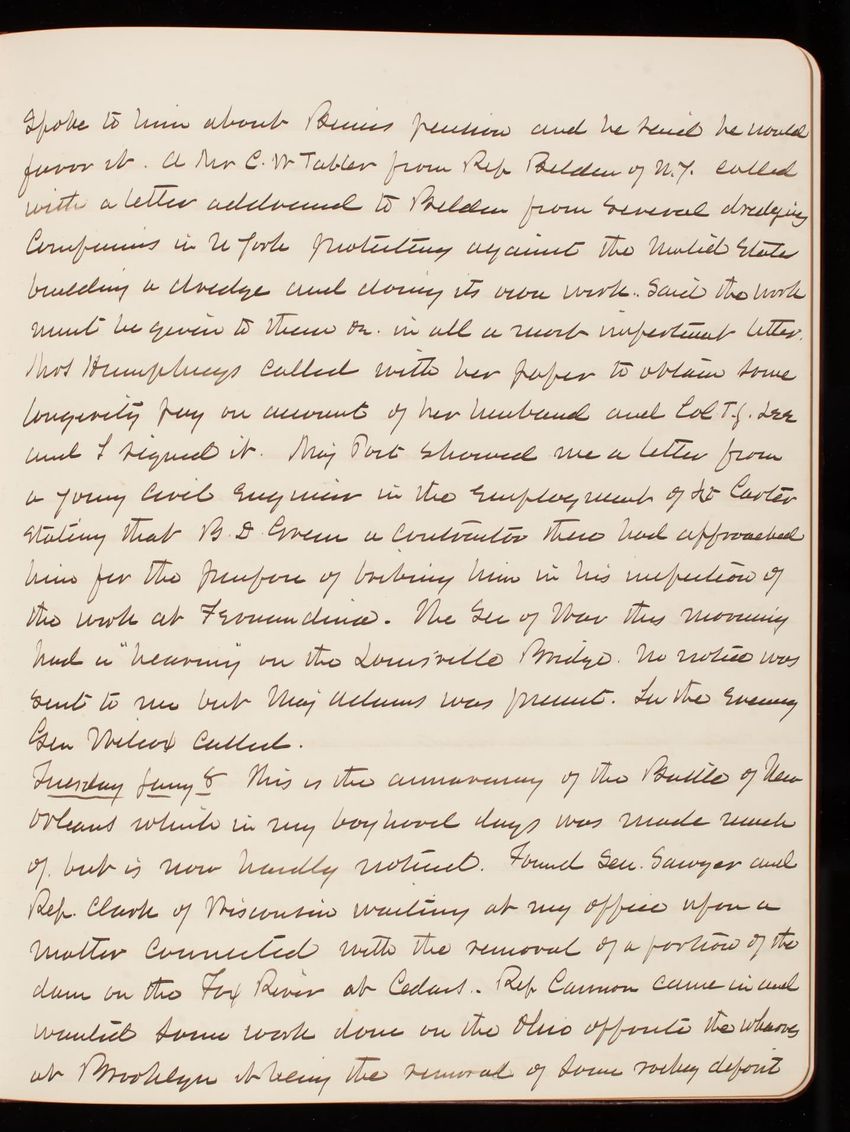 Spoke to him about Bemis pension and he said he would
favor it. A Mr C. W Tabler from Rep Belden of N.Y. called
with a letter addressed to Belden from several dredging
Companies in N York protesting against the United State
building a dredge and doing its own work. Said the work
must be given to them &c. in all a most impertinent letter.
Mrs Humphreys called with her paper to obtain some
longevity pay on account of her husband and Col T. J. Lee
and I signed it. Maj Post showed me a letter from
a young Civil Engineer in the employment of Lt Carter
stating that B. D. Green a contractor there had approached
him for the purpose of bribing him in his inspection of
the work at Fernandina. The Sec of War this morning
had a "hearing" on the Louisville Bridge. No notice was
sent to me but Maj Adams was present. In the evening
Gen Wilcox called.
Tuesday Jany 8 This is the anniversary of the Battle of New
Orleans which in my boyhood days was made much
of, but is now hardly noticed. Found Sen. Sawyer and
Rep. Clark of Wisconsin waiting at my office upon a
matter connected with the removal of a portion of the
dam on the Fox River at Cedars. Rep Cannon came in and
wanted some work done on the Ohio opposite the wharves
at Brooklyn it being the removal of some rocky deposit